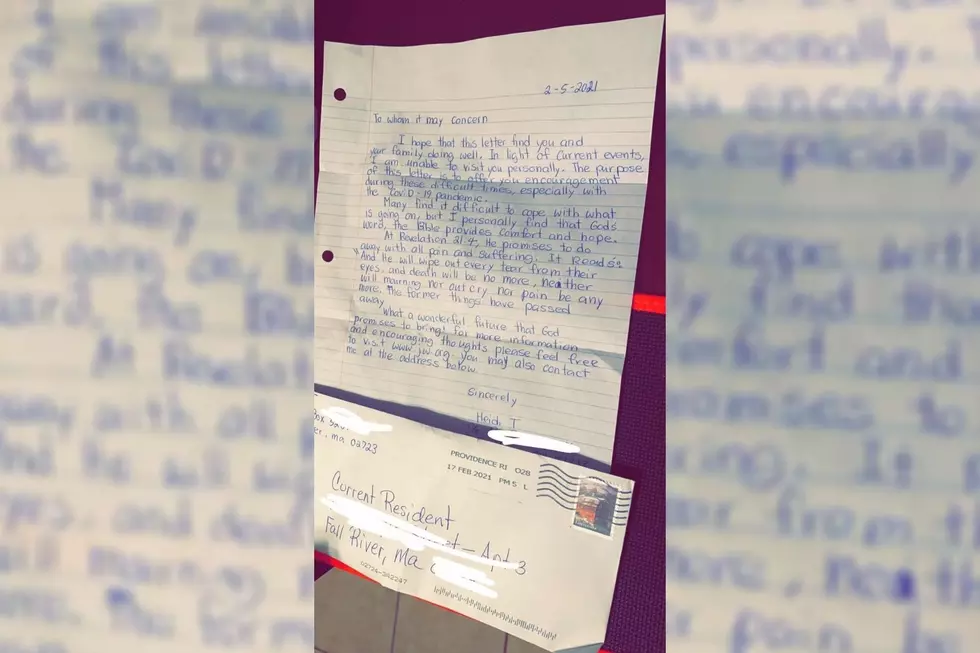 2-5-2021
To whom it may concern
I hope that this letter find you and
your family doing well. In light of current events,
I am unable to visit you personally. The purpose
of this letter is to offer you encouragement
during these difficult times, especially with
the CoviD-19 pandemic.
Many find it difficult to cope with what
is going on, but I personally find that God's
word, the Bible provides comfort and hope.
At Revelation 21:4, He promises to do
away with all pain and suffering. It Reads:
"And He will wipe out every tear from their
eyes, and death will be no more, neither
will mourning nor outcry nor pain be any
more. The former things have passed
away
What a wonderful future that God
promises to bring! for more information
and encouraging thoughts please feel free
to visit www.jw.org. you may also contact
me at the address below.
Sincerely
Heidi T
Box
er, ma 02723
PROVIDENCE RI 028
17 FEB 2021 PM 5 L
Current Resident
Apt 3
Fall River, Ma